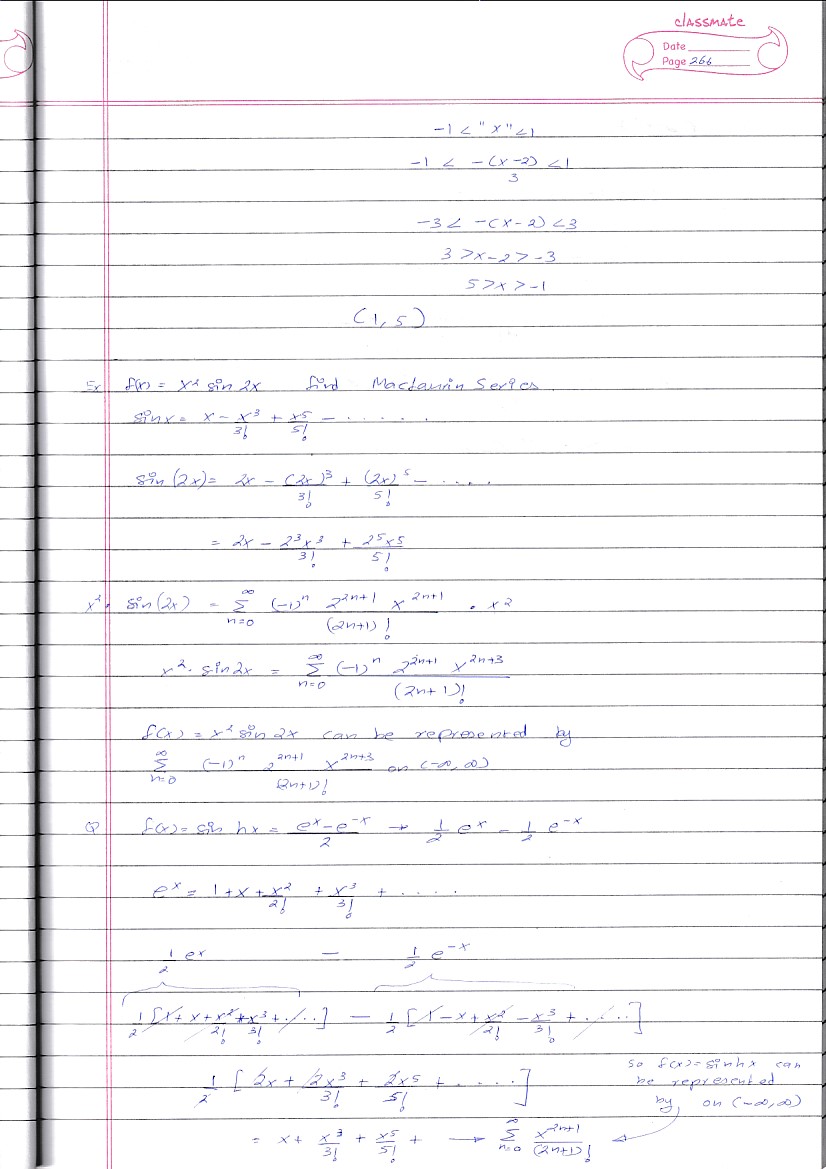 classmate
Date
Page 266
-1 < "x" < 1
-1 < -(x-2)/3 < 1
-3 < -(x-2) < 3
3 > x-2 > -3
5 > x > -1
(1, 5)
Ex f(x) = x² sin 2x find Maclaurin Series.
sin x = x - x³/3! + x⁵/5! - ......
sin(2x) = 2x - (2x)³/3! + (2x)⁵/5! - .....
= 2x - 2³x³/3! + 2⁵x⁵/5!
x². sin(2x) = ∑_{n=0}^{∞} (-1)ⁿ 2^{2n+1} x^{2n+1}/(2n+1)! . x²
x². sin 2x = ∑_{n=0}^{∞} (-1)ⁿ 2^{2n+1} x^{2n+3}/(2n+1)!
f(x) = x² sin 2x can be represented by
∑_{n=0}^{∞} (-1)ⁿ 2^{2n+1} x^{2n+3}/(2n+1)! on (-∞, ∞)
Q f(x) = sin hx = (e^x - e^{-x})/2 → 1/2 e^x - 1/2 e^{-x}
e^x = 1 + x + x²/2! + x³/3! + .....
1/2 e^x - 1/2 e^{-x}
1/2 [1 + x + x²/2! + x³/3! + ....] - 1/2 [1 - x + x²/2! - x³/3! + ....]
1/2 [2x + 2x³/3! + 2x⁵/5! + .....]
so f(x) = sinhx can
be represented
by on (-∞, ∞)
= x + x³/3! + x⁵/5! + → ∑_{n=0}^{∞} x^{2n+1}/(2n+1)!